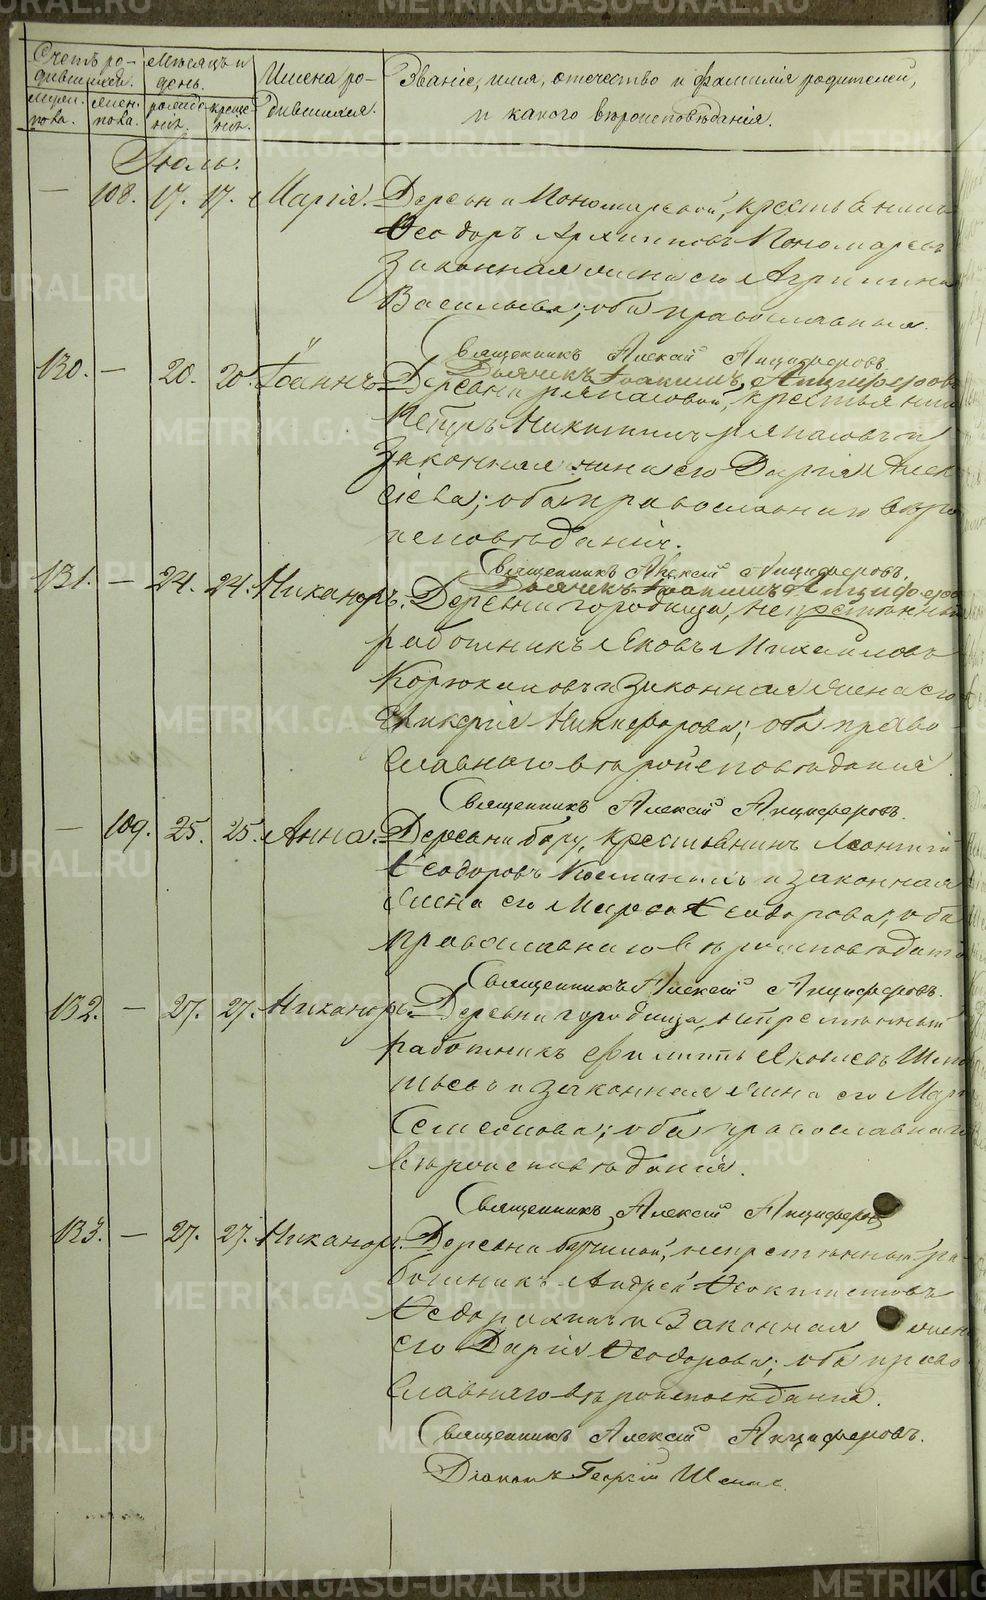 METRIKI.GASO-URAL.RU
Счетъ ро-
дившихся.
Мѣсяцъ и
день.
Имена ро-
дившихся.
Званіе, имя, отчество и фамилія родителей,
и какого вѣроисповѣданія.
Муже-
пола.
Жен.
пола.
рожде
нія.
креще
нія.
Іюль.
— 108. 17. 17. Марія. Деревни Пономаревой, крестьянинъ
Ѳеодоръ Архиповъ Пономаревъ
Законная жена его Агрипина
Васильева; оба православныя.
Священникъ Алексій Анциферовъ
Дьячекъ Іоакимъ Анциферовъ
130. — 20. 20. Іоаннъ Деревни крестьянинъ
Петръ Никитинъ и
Законная жена его Дарія Алек
сіева; оба православнаго вѣро
исповѣданія.
Священникъ Алексій Анциферовъ.
Дьячекъ Іоакимъ Анциферовъ
131. — 24. 24. Никаноръ. Деревни городища, непремѣнный
работникъ Яковъ Михайловъ
Корюкаловъ и законная жена его
Гликерія Никифорова; оба право-
славнаго вѣроисповѣданія
Священникъ Алексій Анциферовъ.
— 109. 25. 25. Анна. Деревни бору, крестьянинъ Леонтій
Ѳеодоровъ и законная
жена его Марѳа Ѳеодорова; оба
православнаго вѣроисповѣданія
Священникъ Алексій Анциферовъ.
132. — 27. 27. Никаноръ. Деревни городища, непремѣнный
работникъ Филиппъ Яковлевъ
и законная жена его
Семенова; оба православнаго
вѣроисповѣданія.
Священникъ Алексій Анциферовъ
133. — 27. 27. Никаноръ. Деревни непремѣнный ра-
ботникъ Андрей Ѳеоктистовъ
и Законная жена
его Дарія Ѳеодорова; оба право
славнаго вѣроисповѣданія.
Священникъ Алексій Анциферовъ.
Діаконъ Георгій